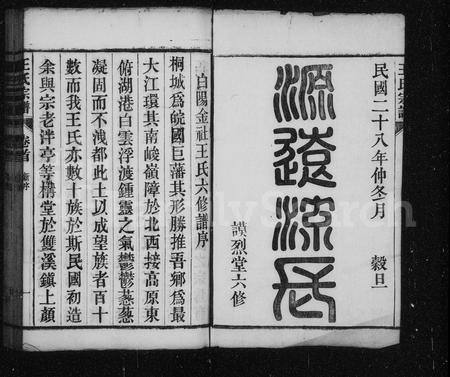 王氏宗譜
民國二十八年仲冬月 穀旦
源遠流長
謨烈堂六修
白陽金社王氏六修譜序
桐城爲皖國巨藩其形勝推吾鄉爲最
大江環其南峻嶺障於北西接高原東
俯湖港白雲浮渡鍾靈之氣鬱鬱葱葱
凝固而不洩都此土以成望族者百十
數而我王氏亦數十族於斯民國初造
余與宗老泮亭等攢堂於雙溪鎮上顏
王氏宗譜 卷首
FamilySearch